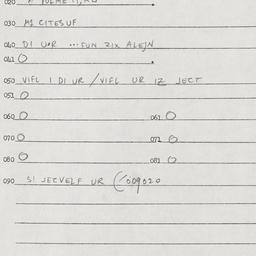 020
030 M1 CITESUF
040 DI UOR ...FUN ZIX ALEJN
041 O
050 VIFL I DI UR / VIFL UR IZ JECT
051 O
060 O 061 O
070 O 071 O
080 O 081 O
090 SI JECVELF UR (/009020